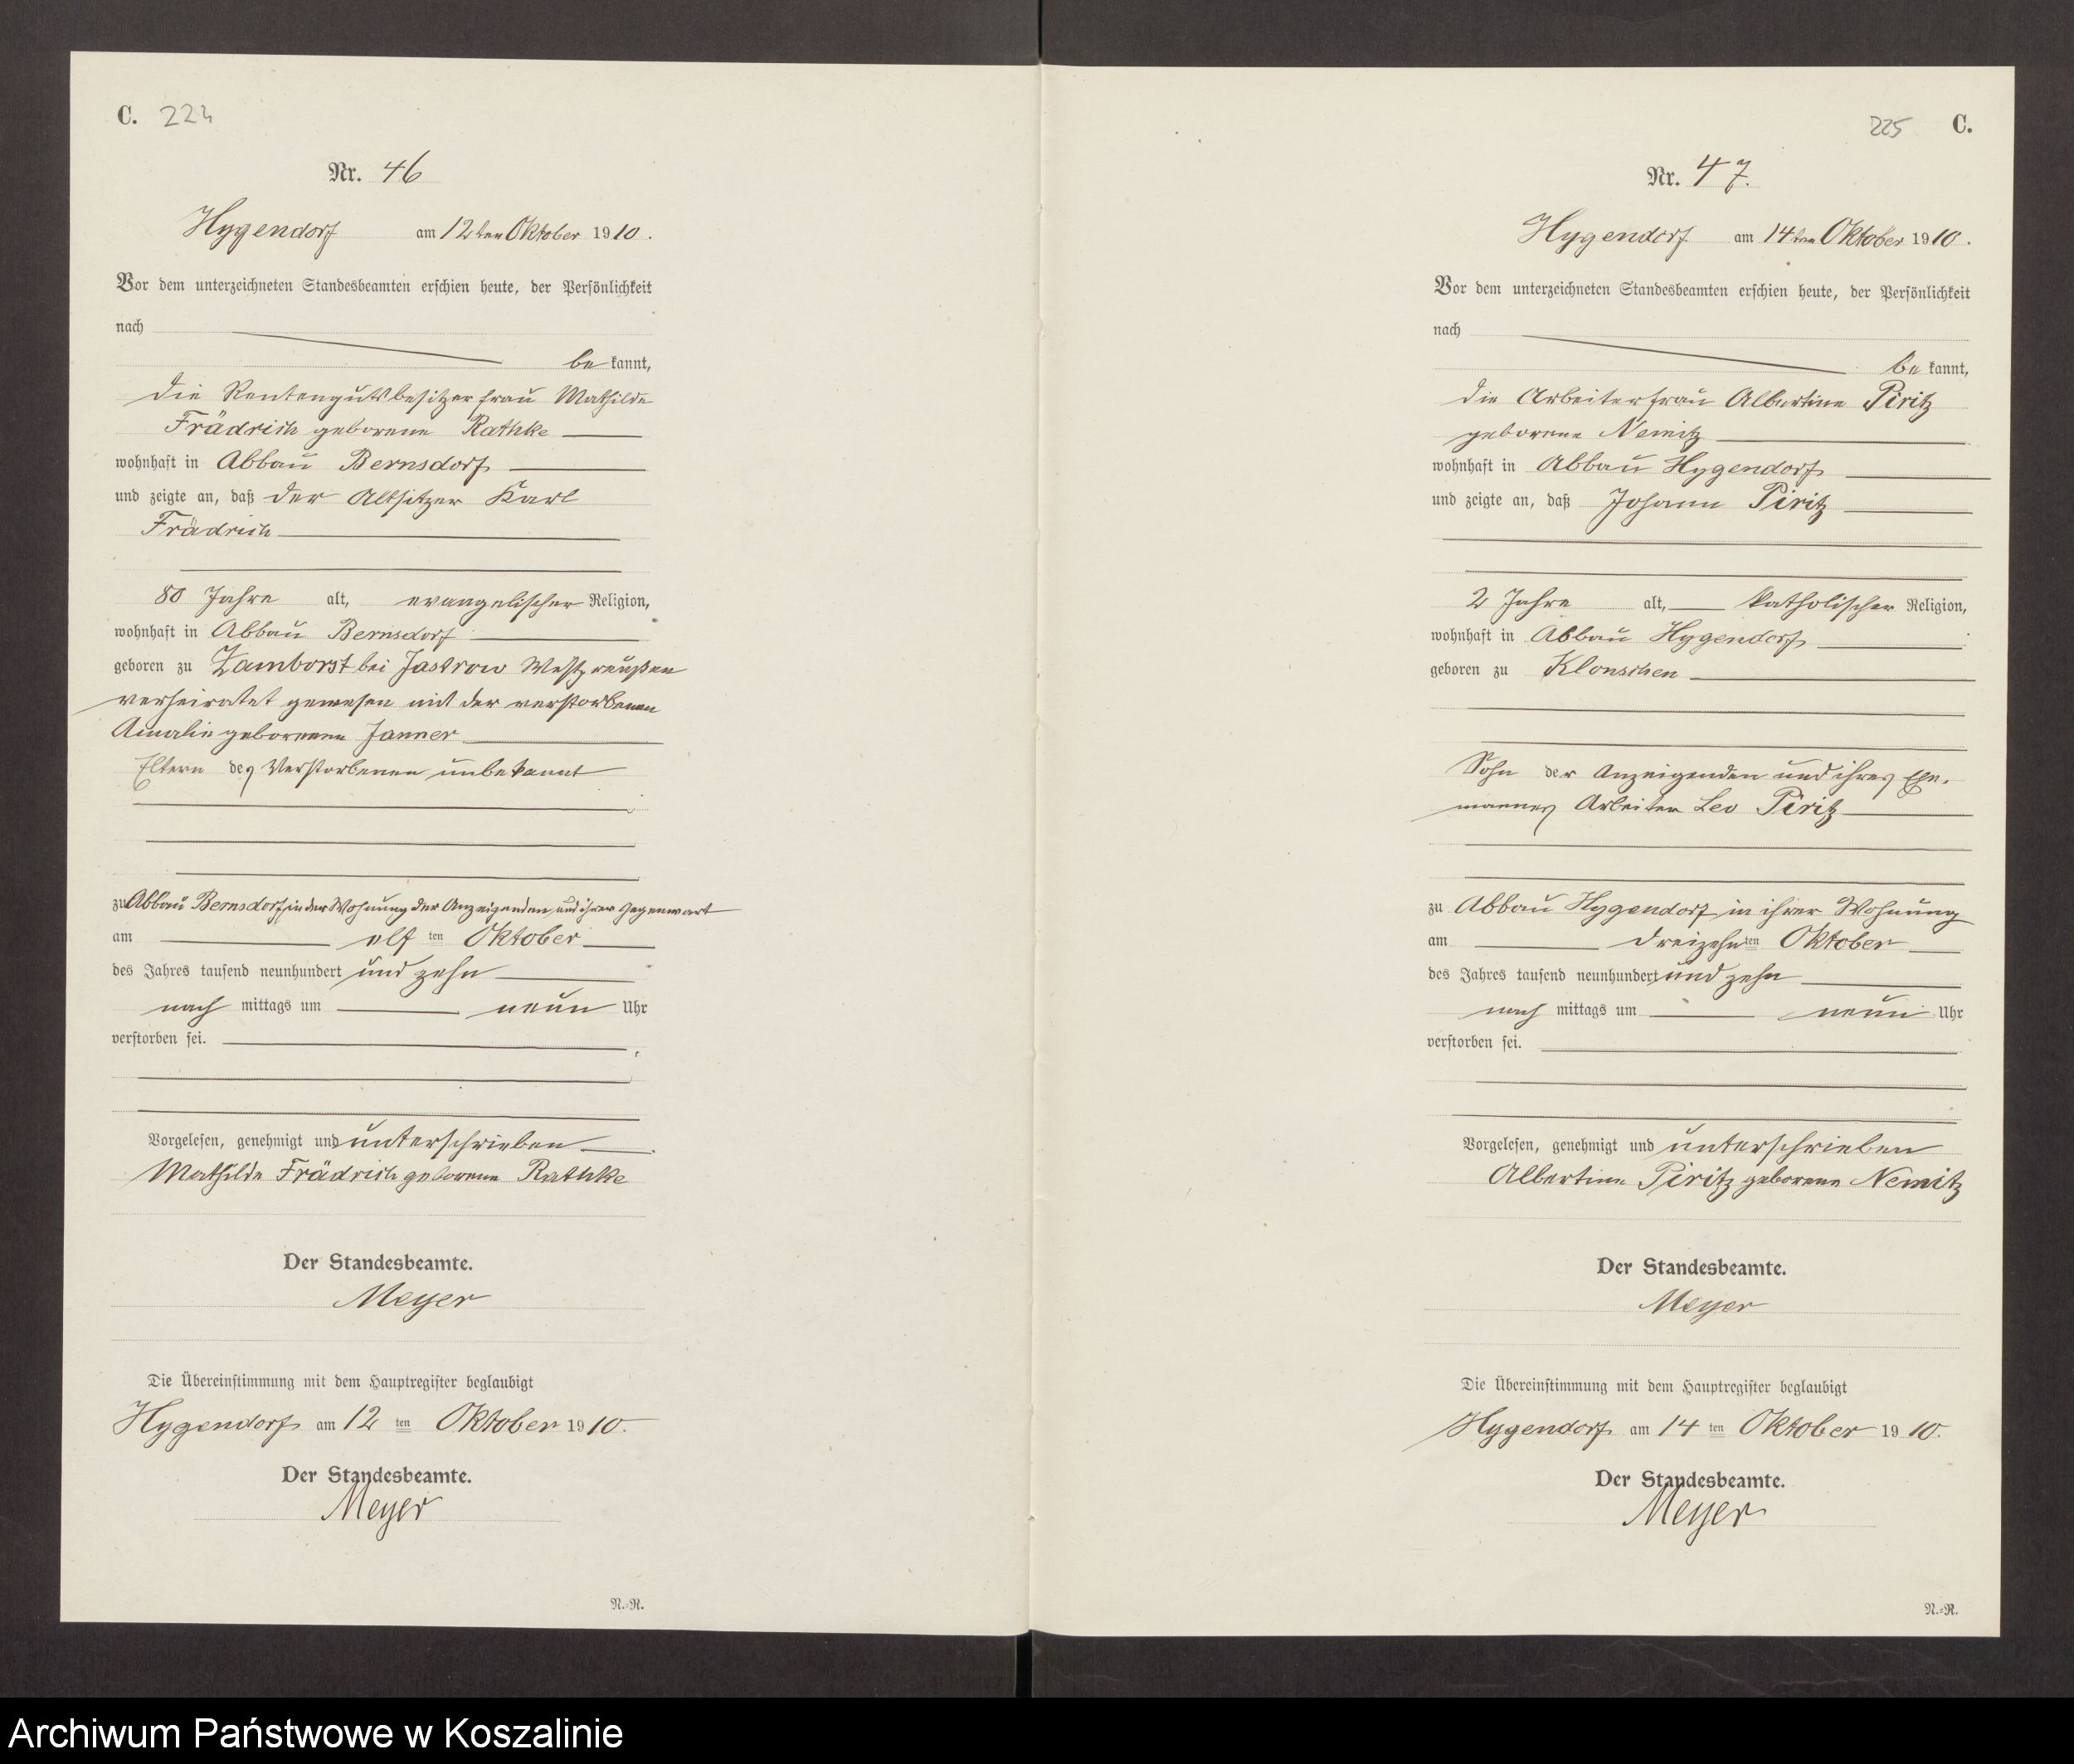 C. 224
Nr. 46
Hygendorf am 12ten Oktober 1910.
Vor dem unterzeichneten Standesbeamten erschien heute, der Persönlichkeit
nach
bekannt,
die Rentengutsbesitzerfrau Mathilde
Frädrich geborene Rathke
wohnhaft in Abbau Bernsdorf
und zeigte an, daß der Altsitzer Karl
Frädrich
80 Jahre alt, evangelischer Religion,
wohnhaft in Abbau Bernsdorf
geboren zu Zamborst bei Jastrow Westpreußen
verheiratet gewesen mit der verstorbenen
Amalie geborenen Janner
Eltern des Verstorbenen unbekannt
zu Abbau Bernsdorf in der Wohnung der Anzeigenden und ihrer Gegenwart
am elften Oktober
des Jahres tausend neunhundert und zehn
nachmittags um neun Uhr
verstorben sei.
Vorgelesen, genehmigt und unterschrieben
Mathilde Frädrich geborene Rathke
Der Standesbeamte.
Meyer
Die Übereinstimmung mit dem Hauptregister beglaubigt
Hygendorf am 12ten Oktober 1910.
Der Standesbeamte.
Meyer
N.-R.
225 C.
Nr. 47.
Hygendorf am 14ten Oktober 1910.
Vor dem unterzeichneten Standesbeamten erschien heute, der Persönlichkeit
nach
bekannt,
die Arbeiterfrau Albertine Piritz
geborene Nemitz
wohnhaft in Abbau Hygendorf
und zeigte an, daß Johann Piritz
2 Jahre alt, katholischer Religion,
wohnhaft in Abbau Hygendorf
geboren zu Klonschen
Sohn der Anzeigenden und ihres Ehe-
mannes Arbeiter Leo Piritz
zu Abbau Hygendorf in ihrer Wohnung
am dreizehnten Oktober
des Jahres tausend neunhundert und zehn
nachmittags um neun Uhr
verstorben sei.
Vorgelesen, genehmigt und unterschrieben
Albertine Piritz geborene Nemitz
Der Standesbeamte.
Meyer
Die Übereinstimmung mit dem Hauptregister beglaubigt
Hygendorf am 14ten Oktober 1910.
Der Standesbeamte.
Meyer
N.-R.
Archiwum Państwowe w Koszalinie